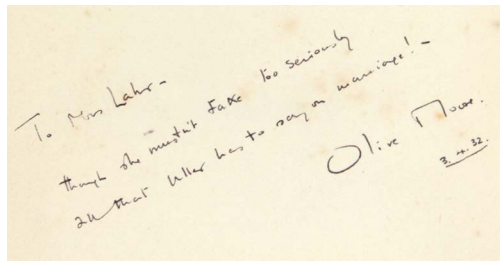 To Mrs Lahr -
though she mustn't take too seriously
all that Uller has to say on marriage! -
Olive Moore.
3. 4. 32.